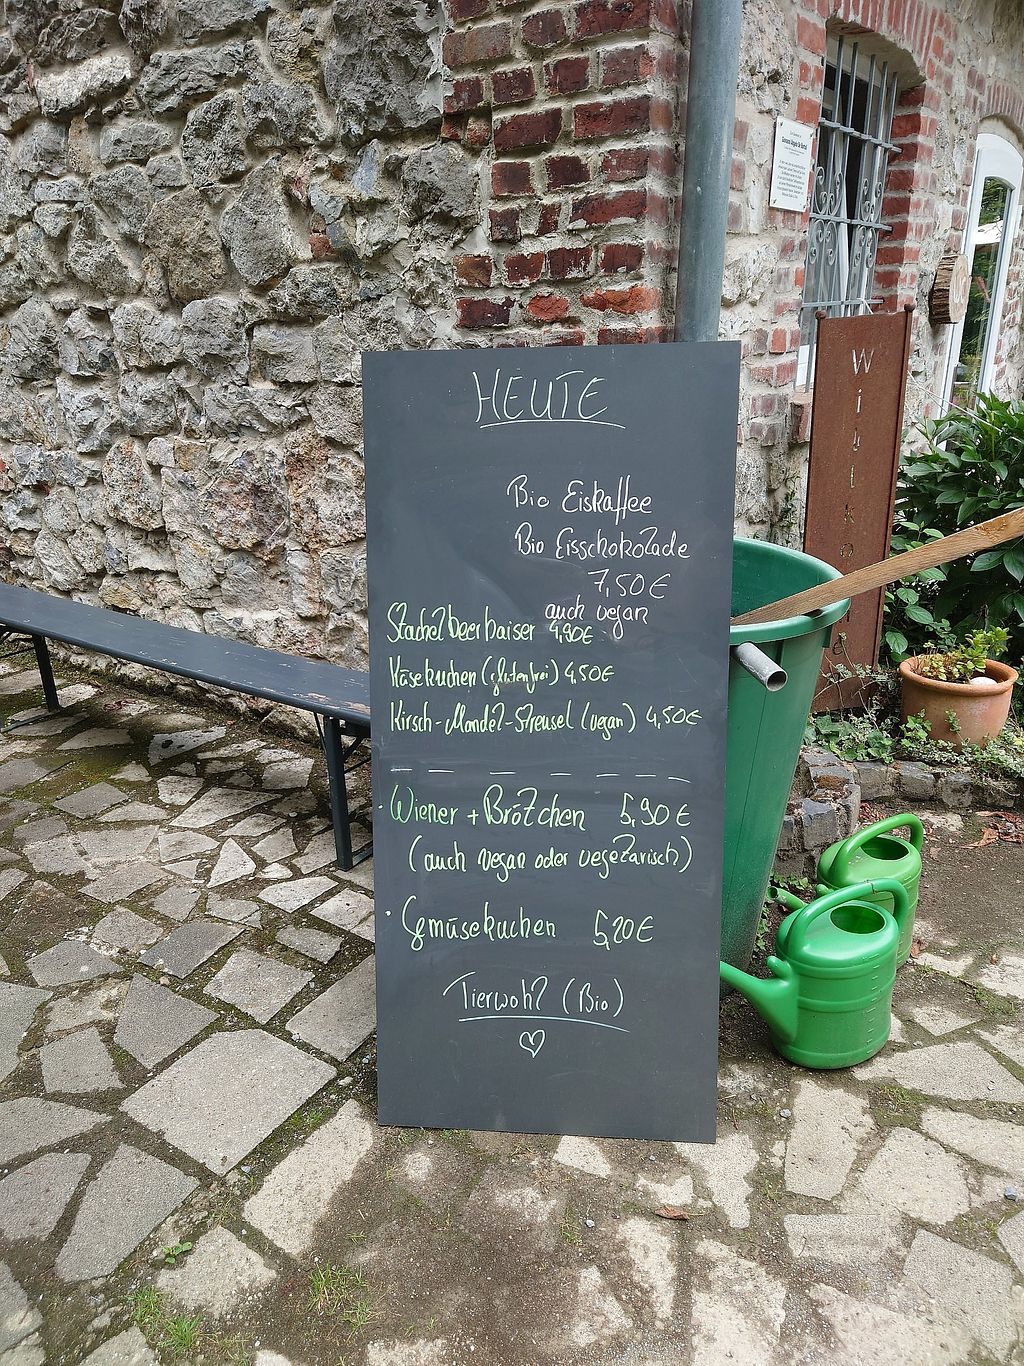 HEUTE
Bio Eiskaffee
Bio Eisschokolade
7,50€
auch vegan
Stachelbeerbaiser 4,90€
Käsekuchen (glutenfrei) 4,50€
Kirsch-Mandel-Streusel (vegan) 4,50€
Wiener + Brötchen 5,90€
(auch vegan oder vegetarisch)
Gemüsekuchen 5,20€
Tierwohl (Bio)